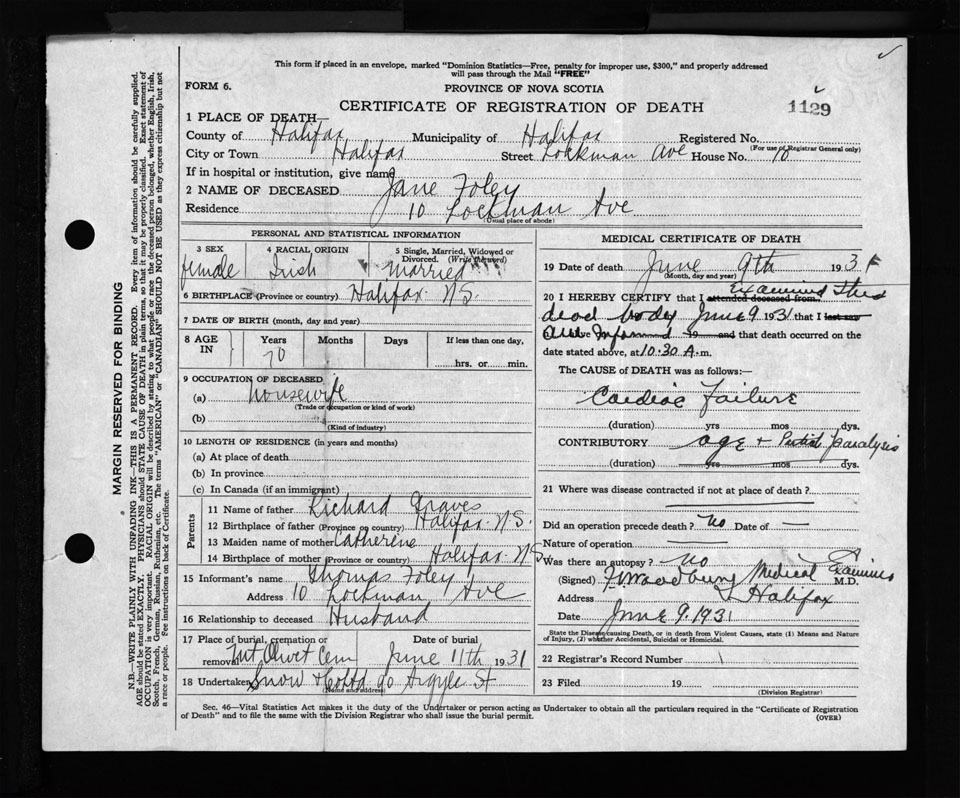 This form if placed in an envelope, marked "Dominion Statistics—Free, penalty for improper use, $300," and properly addressed
will pass through the Mail "FREE"
FORM 6.
PROVINCE OF NOVA SCOTIA
CERTIFICATE OF REGISTRATION OF DEATH
1129
1 PLACE OF DEATH—
County of Halifax Municipality of Halifax Registered No.
(For use of Registrar General only)
City or Town Halifax Street Lockman Ave House No. 10
If in hospital or institution, give name
2 NAME OF DECEASED Jane Foley
Residence 10 Lockman Ave
(Usual place of abode)
PERSONAL AND STATISTICAL INFORMATION
3 SEX
female
4 RACIAL ORIGIN
Irish
5 Single, Married, Widowed or
Divorced. (Write the word)
Married
6 BIRTHPLACE (Province or country) Halifax N.S.
7 DATE OF BIRTH (month, day and year)
8 AGE IN
Years Months Days If less than one day,
70
hrs. or min.
9 OCCUPATION OF DECEASED
(a) housewife
(Trade or occupation or kind of work)
(b)
(Kind of industry)
10 LENGTH OF RESIDENCE (in years and months)
(a) At place of death
(b) In province
(c) In Canada (if an immigrant)
Parents
11 Name of father Richard Graves
12 Birthplace of father (Province or country) Halifax N.S.
13 Maiden name of mother Catherene
14 Birthplace of mother (Province or country) Halifax N.S.
15 Informant's name Thomas Foley
Address 10 Lockman Ave
16 Relationship to deceased Husband
17 Place of burial, cremation or Date of burial
removal Mt Olivet Cem June 11th 1931
18 Undertaker Snow + Co Ltd 90 Argyle St
(Name and address)
MEDICAL CERTIFICATE OF DEATH
19 Date of death June 9th 1931
(Month, day and year)
20 I HEREBY CERTIFY that I attended deceased from Examined this
dead body June 9 1931 that I last saw
Informed 19 and that death occurred on the
date stated above, at 10.30 A.m.
The CAUSE of DEATH was as follows:—
Cardiac Failure
(duration) yrs mos dys.
CONTRIBUTORY age + Partial paralysis
(duration) yrs mos dys.
21 Where was disease contracted if not at place of death?
Did an operation precede death? No Date of —
Nature of operation —
Was there an autopsy? No
(Signed) Medical Examiner M.D.
Address Halifax
Date June 9. 1931
State the Disease causing Death, or in death from Violent Causes, state (1) Means and Nature
of Injury, (2) whether Accidental, Suicidal or Homicidal.
22 Registrar's Record Number
23 Filed 19
(Division Registrar)
Sec. 46—Vital Statistics Act makes it the duty of the Undertaker or person acting as Undertaker to obtain all the particulars required in the "Certificate of Registration
of Death" and to file the same with the Division Registrar who shall issue the burial permit.
(OVER)
MARGIN RESERVED FOR BINDING
N.B.—WRITE PLAINLY WITH UNFADING INK—THIS IS A PERMANENT RECORD. Every item of information should be carefully supplied.
AGE should be stated EXACTLY. PHYSICIANS should STATE CAUSE OF DEATH in plain terms, so that it may be properly classified. Exact statement of
OCCUPATION is very important. RACIAL ORIGIN will be described by stating to what people or race the deceased person belonged, whether English, Irish,
Scotch, French, German, Russian, Ruthenian, etc. The terms "AMERICAN" or "CANADIAN" SHOULD NOT BE USED as they express citizenship but not
a race or people. See instructions on back of Certificate.